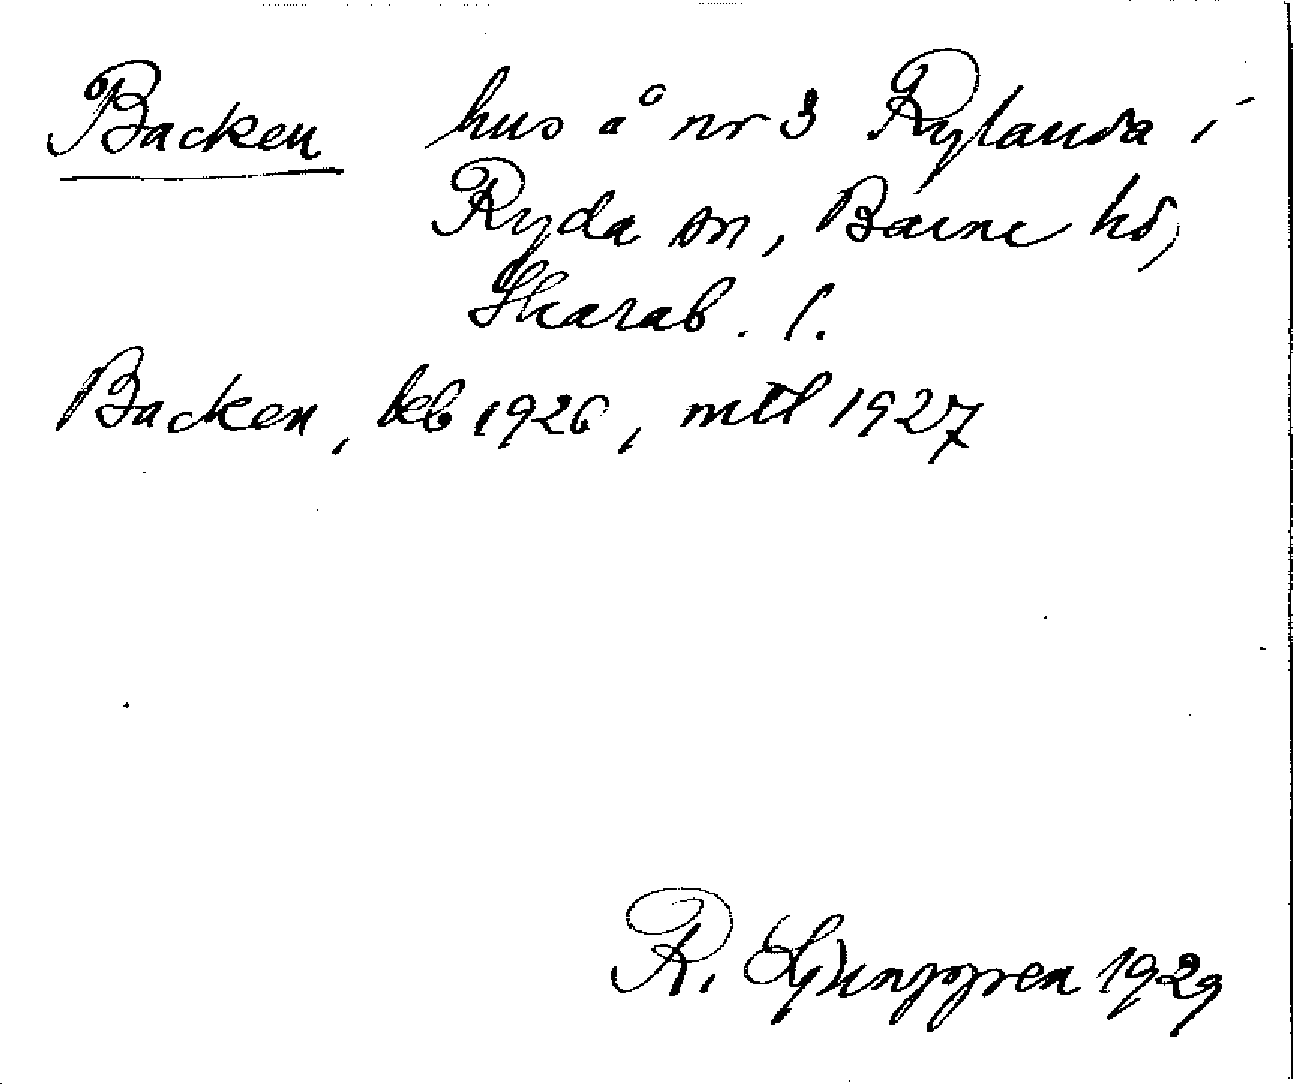 Backen hus å nr 3 Rylanda i
Ryda sn, Barne hd,
Skarab. l.
Backen, kb 1926, mtl 1927
R. Ljunggren 1929